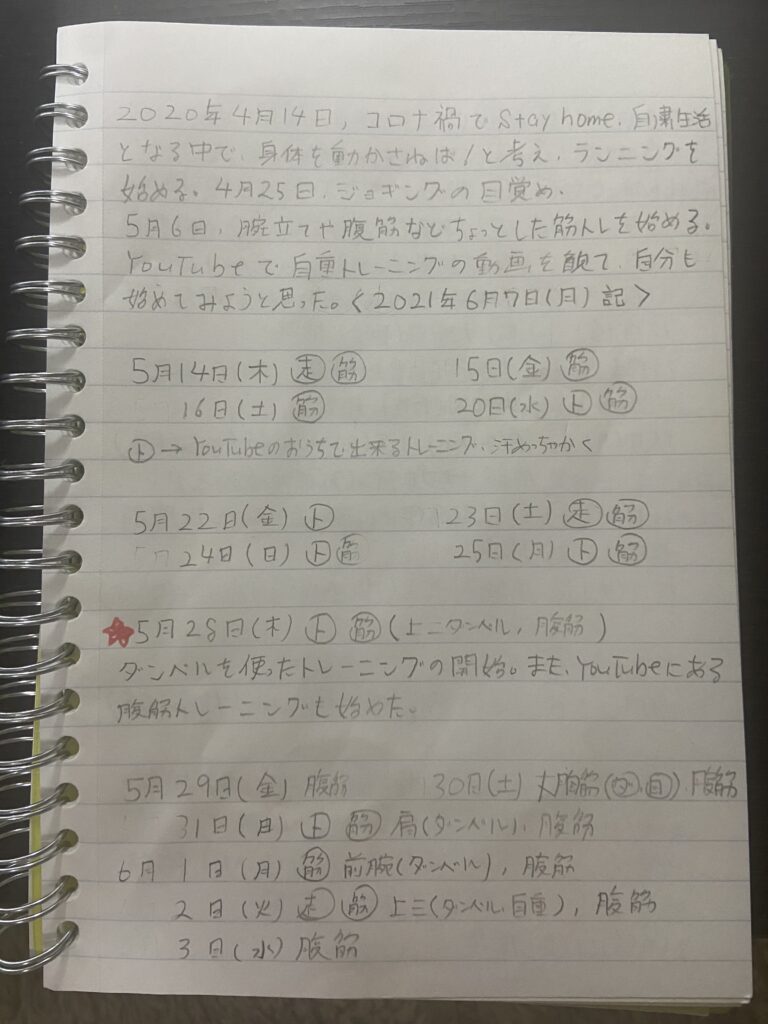 2020年4月14日, コロナ禍でStay home. 自粛生活
となる中で、身体を動かさねば!と考え、ランニングを
始める。4月25日、ジョギングの目覚め、
5月6日、腕立てや腹筋などちょっとした筋トレを始める。
YouTubeで自重トレーニングの動画を観て、自分も
始めてみようと思った。<2021年6月7日(月)記>
5月14日(木) 走 筋 15日(金) 筋
16日(土) 筋 20日(水) ト 筋
ト→YouTubeのおうちで出来るトレーニング、汗めっちゃかく
5月22日(金) ト 23日(土) 走 筋
5月24日(日) ト 筋 25日(月) ト 筋
★5月28日(木) ト 筋 (上二ダンベル, 腹筋)
ダンベルを使ったトレーニングの開始。また、YouTubeにある
腹筋トレーニングも始めた。
5月29日(金) 腹筋 30日(土) 大胸筋(ダ、自)、腹筋
31日(日) ト 筋 肩(ダンベル)、腹筋
6月1日(月) 筋 前腕(ダンベル), 腹筋
2日(火) 走 筋 上三(ダンベル、自重), 腹筋
3日(水) 腹筋